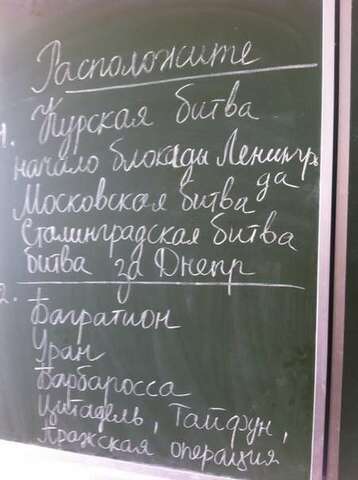 Расположите
1. Курская битва
начало блокады Ленингр
да
Московская битва
Сталинградская битва
битва за Днепр
2. Багратион
Уран
Барбаросса
Цитадель, Тайфун,
Пражская операция